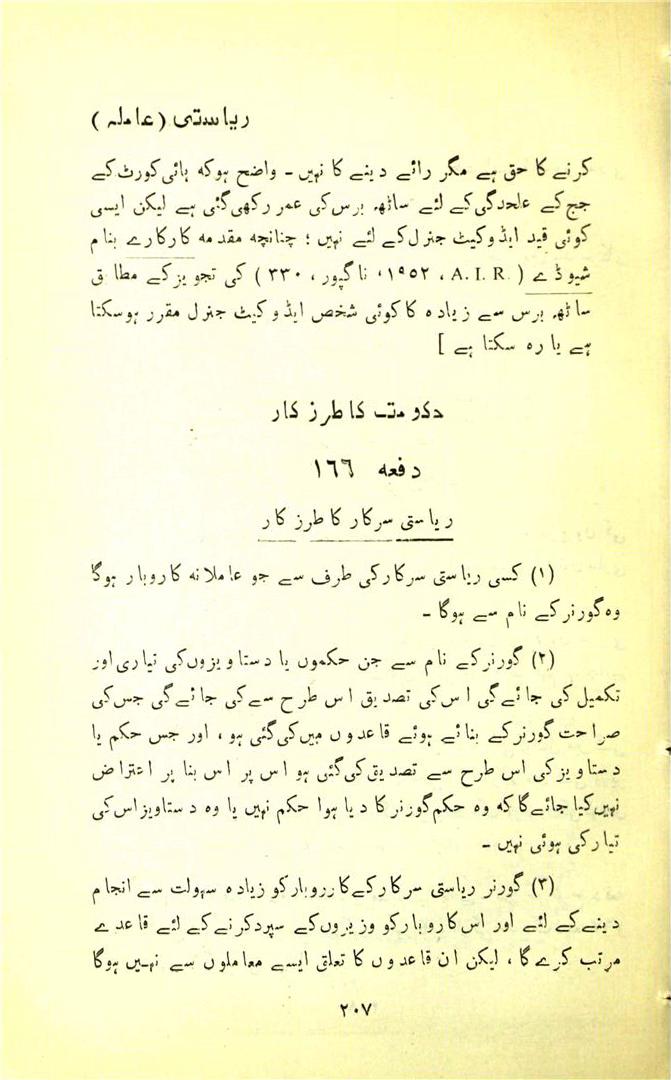 ریاستی (عاملہ)
کرنے کا حق ہے مگر رائے دینے کا نہیں ۔ واضح ہو کہ ہائی کورٹ کے
جج کے علحدگی کے لئے ساٹھ برس کی عمر رکھی گئی ہے لیکن ایسی
کوئی قید ایڈوکیٹ جنرل کے لئے نہیں ؛ چنانچہ مقدمہ کارکارے بنام
شیوڈے ( A. I. R. ، ۱۹۵۲، ناگپور، ۳۳۰ ) کی تجویز کے مطابق
ساٹھ برس سے زیادہ کا کوئی شخص ایڈوکیٹ جنرل مقرر ہوسکتا
ہے یا رہ سکتا ہے ]
حکومت کا طرز کار
دفعہ ۱٦٦
ریاستی سرکار کا طرز کار
(۱) کسی ریاستی سرکار کی طرف سے جو عاملانہ کاروبار ہوگا
وہ گورنر کے نام سے ہوگا ۔
(۲) گورنر کے نام سے جن حکموں یا دستاویزوں کی تیاری اور
تکمیل کی جائے گی اس کی تصدیق اس طرح سے کی جائے گی جس کی
صراحت گورنر کے بنائے ہوئے قاعدوں میں کی گئی ہو ، اور جس حکم یا
دستاویز کی اس طرح سے تصدیق کی گئی ہو اس پر اس بنا پر اعتراض
نہیں کیا جائے گا کہ وہ حکم گورنر کا دیا ہوا حکم نہیں یا وہ دستاویز اس کی
تیار کی ہوئی نہیں ۔
(۳) گورنر ریاستی سرکار کے کارروبار کو زیادہ سہولت سے انجام
دینے کے لئے اور اس کاروبار کو وزیروں کے سپرد کرنے کے لئے قاعدے
مرتب کرے گا ، لیکن ان قاعدوں کا تعلق ایسے معاملوں سے نہیں ہوگا
۲۰۷